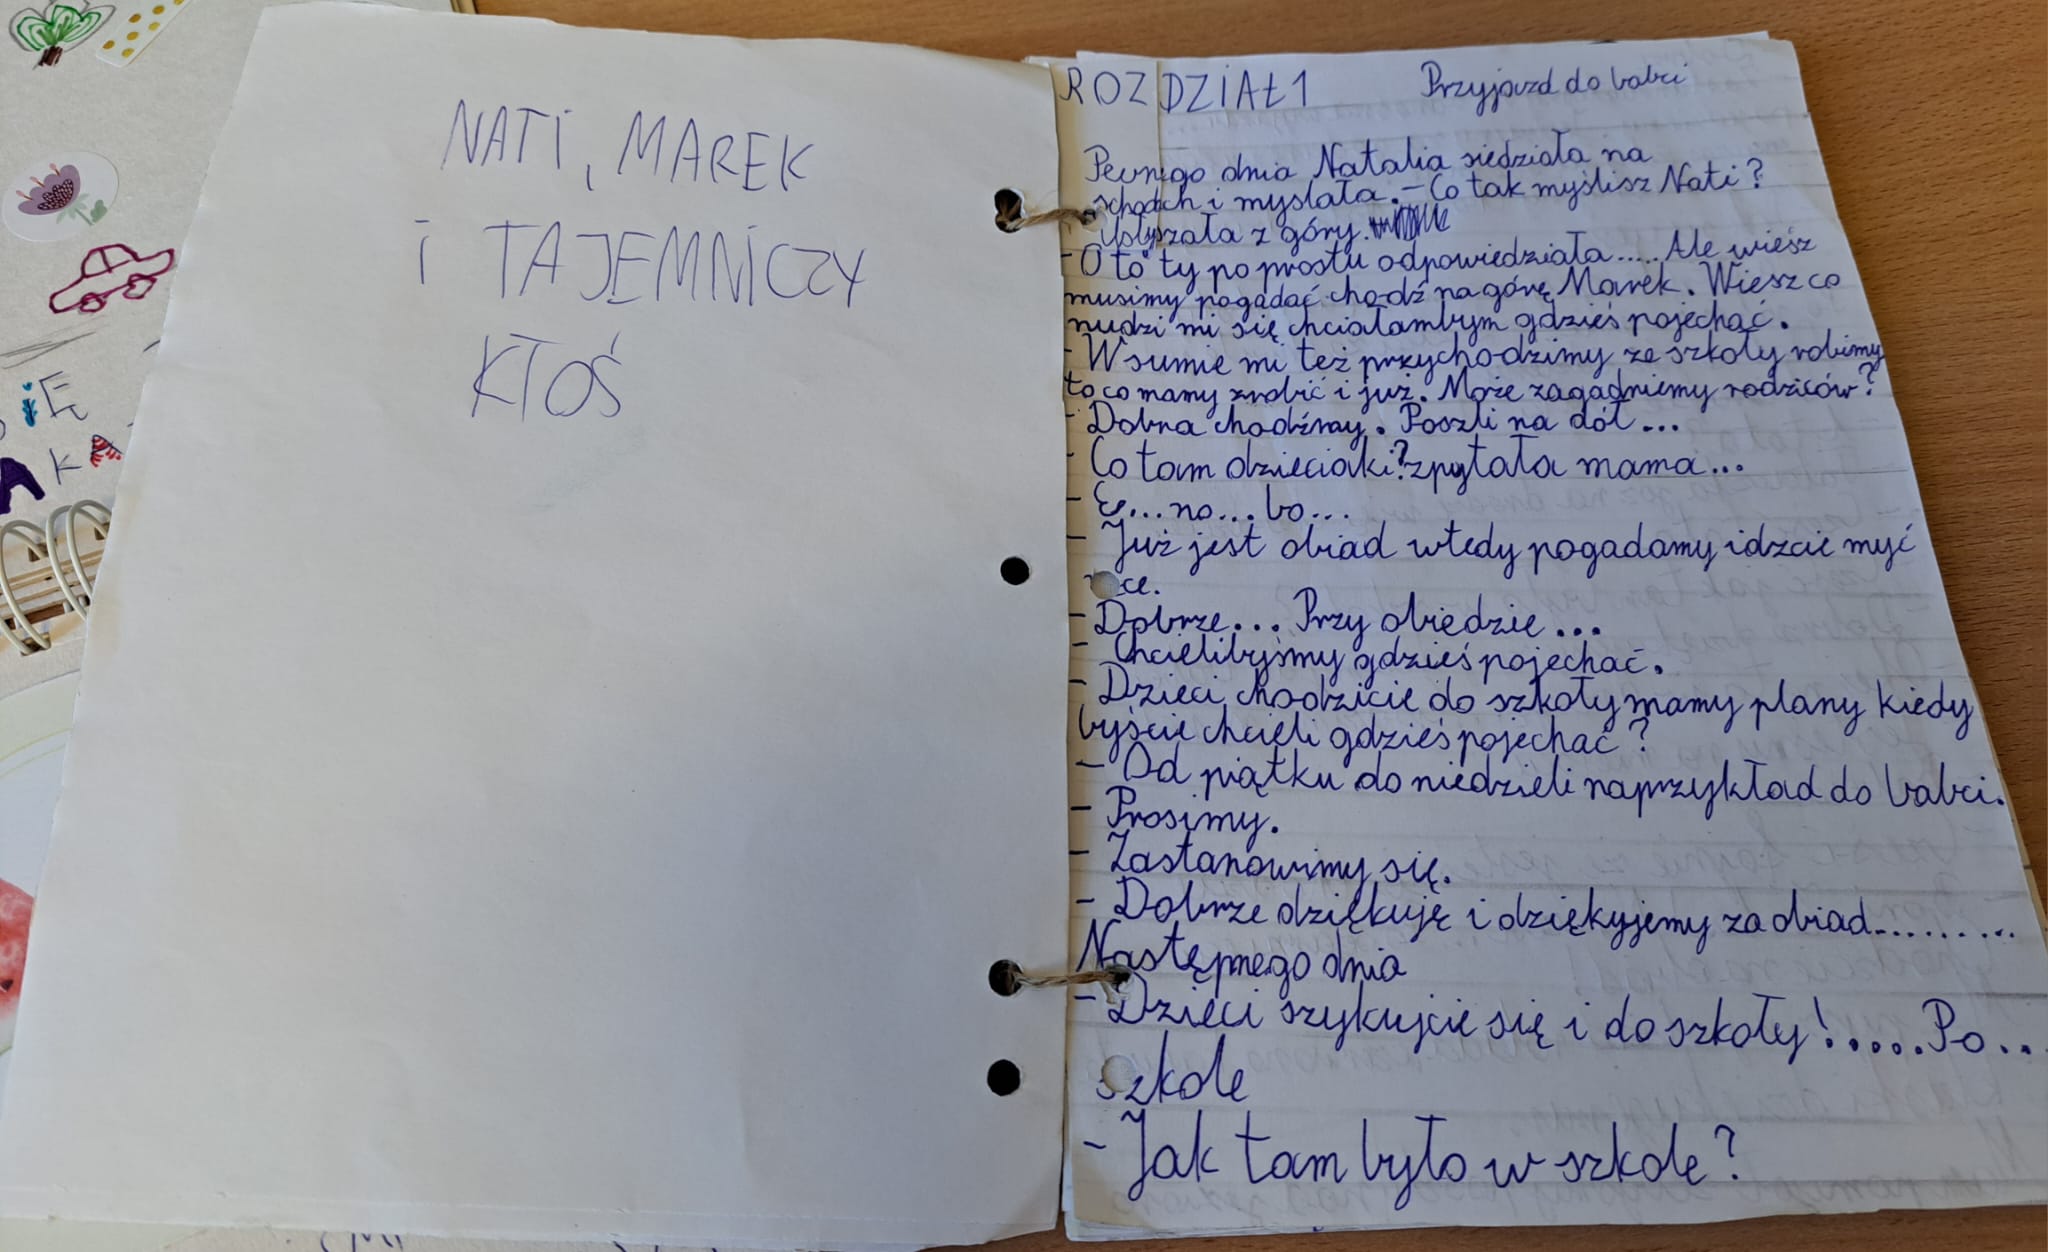 NATI, MAREK
i TAJEMNiCZY
KTOŚ
ROZDZIAŁ 1 Przyjazd do babci
Pewnego dnia Natalia siedziała na
schodach i myslała. - Co tak myślisz Nati?
Usłyszała z góry.
- O to ty po prostu odpowiedziała..... Ale wiesz
musimy pogadać chodź na górę Marek. Wiesz co
nudzi mi się chciałambym gdzieś pojechać.
- W sumie mi też przychodzimy ze szkoły robimy
to co mamy zrobić i już. Może zagadniemy rodziców?
- Dobra chodźmy. Poszli na dół...
- Co tam dzieciaki? zpytała mama...
- E... no... bo...
- Już jest obiad wtedy pogadamy idzcie myć
ce.
- Dobrze... Przy obiedzie...
- Chcielibyśmy gdzieś pojechać.
- Dzieci chodzicie do szkoły mamy plany kiedy
byście chcieli gdzieś pojechać?
- Od piątku do niedzieli naprzykład do babci.
- Prosimy.
- Zastanowimy się.
- Dobrze dziękuję i dziękyjemy za obiad.........
Następnego dnia
- Dzieci szykujcie się i do szkoły!.....Po...
szkole
- Jak tam było w szkole?
iĘ
AKA